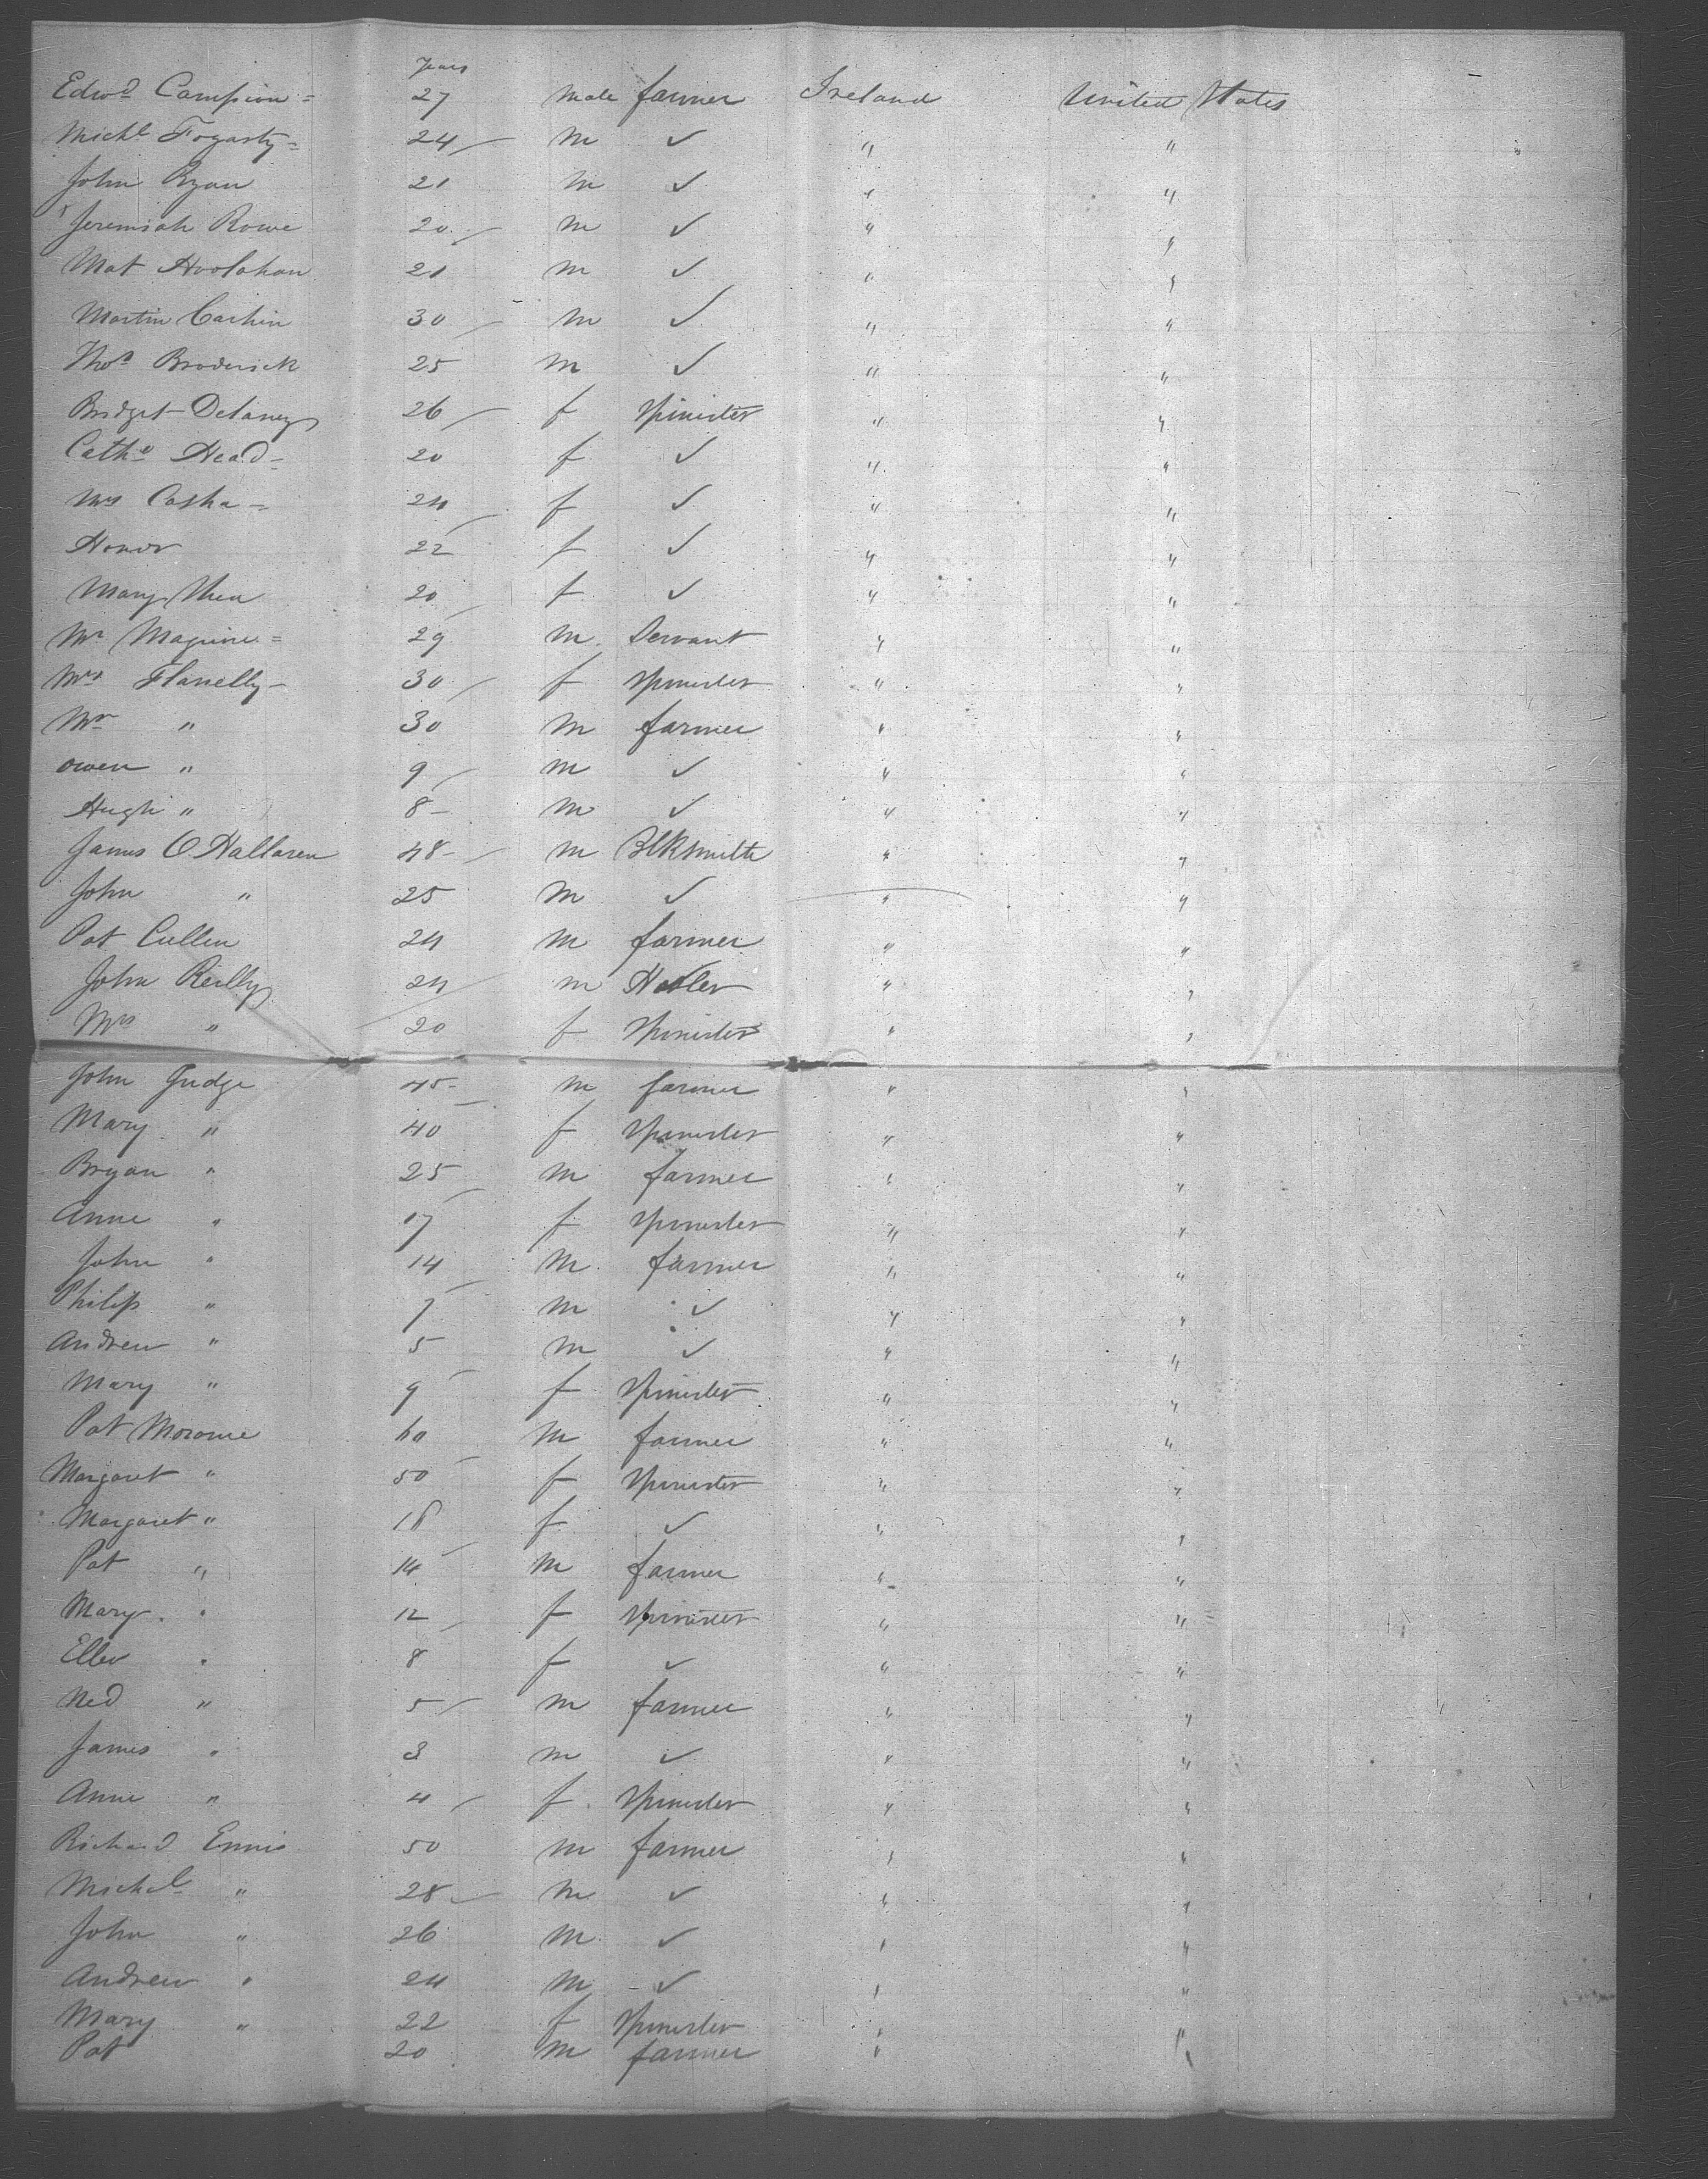 Years
Edwd Campion = 27 Male farmer Ireland United States
Michl Fogarty = 24 m ✓ " "
John Ryan 21 m ✓ " "
Jeremiah Rowe 20 m ✓ " "
Mat Hoolahan 21 m ✓ " "
Martin Cashin 30 m ✓ " "
Thos Broderick 25 m ✓ " "
Bridget Delaney 26 f Spinister " "
Cathe Head 20 f ✓ " "
24 f ✓ " "
Honor 22 f ✓ " "
Mary 20 f ✓ " "
Mr Maguire = 29 m Servant " "
Mrs Flanelly 30 f Spinister " "
Mr " 30 m farmer " "
Owen " 9 m ✓ " "
Hugh " 8 m ✓ " "
James O Hallaren 48 m Blksmith " "
John " 25 m ✓ " "
Pat Cullen 24 m farmer " "
John Reilly 24 m " "
Mrs " 20 f Spinister " "
John Judge 45 m farmer " "
Mary " 40 f Spinister " "
Bryan " 25 m farmer " "
Anne " 17 f Spinister " "
John " 14 m farmer " "
Philip " 7 m ✓ " "
Andrew " 5 m ✓ " "
Mary " 9 f Spinister " "
Pat Morome 60 m farmer " "
Margaret " 50 f Spinister " "
Margaret " 18 f ✓ " "
Pat " 14 m farmer " "
Mary " 12 f Spinister " "
Ellen " 8 f ✓ " "
Ned " 5 m farmer " "
James " 3 m ✓ " "
Anne " 4 f Spinister " "
Richard Ennis 50 m farmer " "
Michl " 28 m ✓ " "
John " 26 m ✓ " "
Andrew " 24 m ✓ " "
Mary " 22 f Spinister " "
Pat 20 m farmer " "